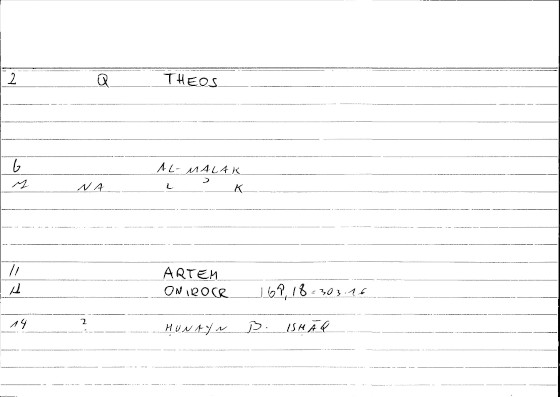 2 Q THEOS
6 AL-MALAK
NA L ʾ K
11 ARTEM
ONIROCR 169,18=303.16
14 ? HUNAYN B. ISHĀQ